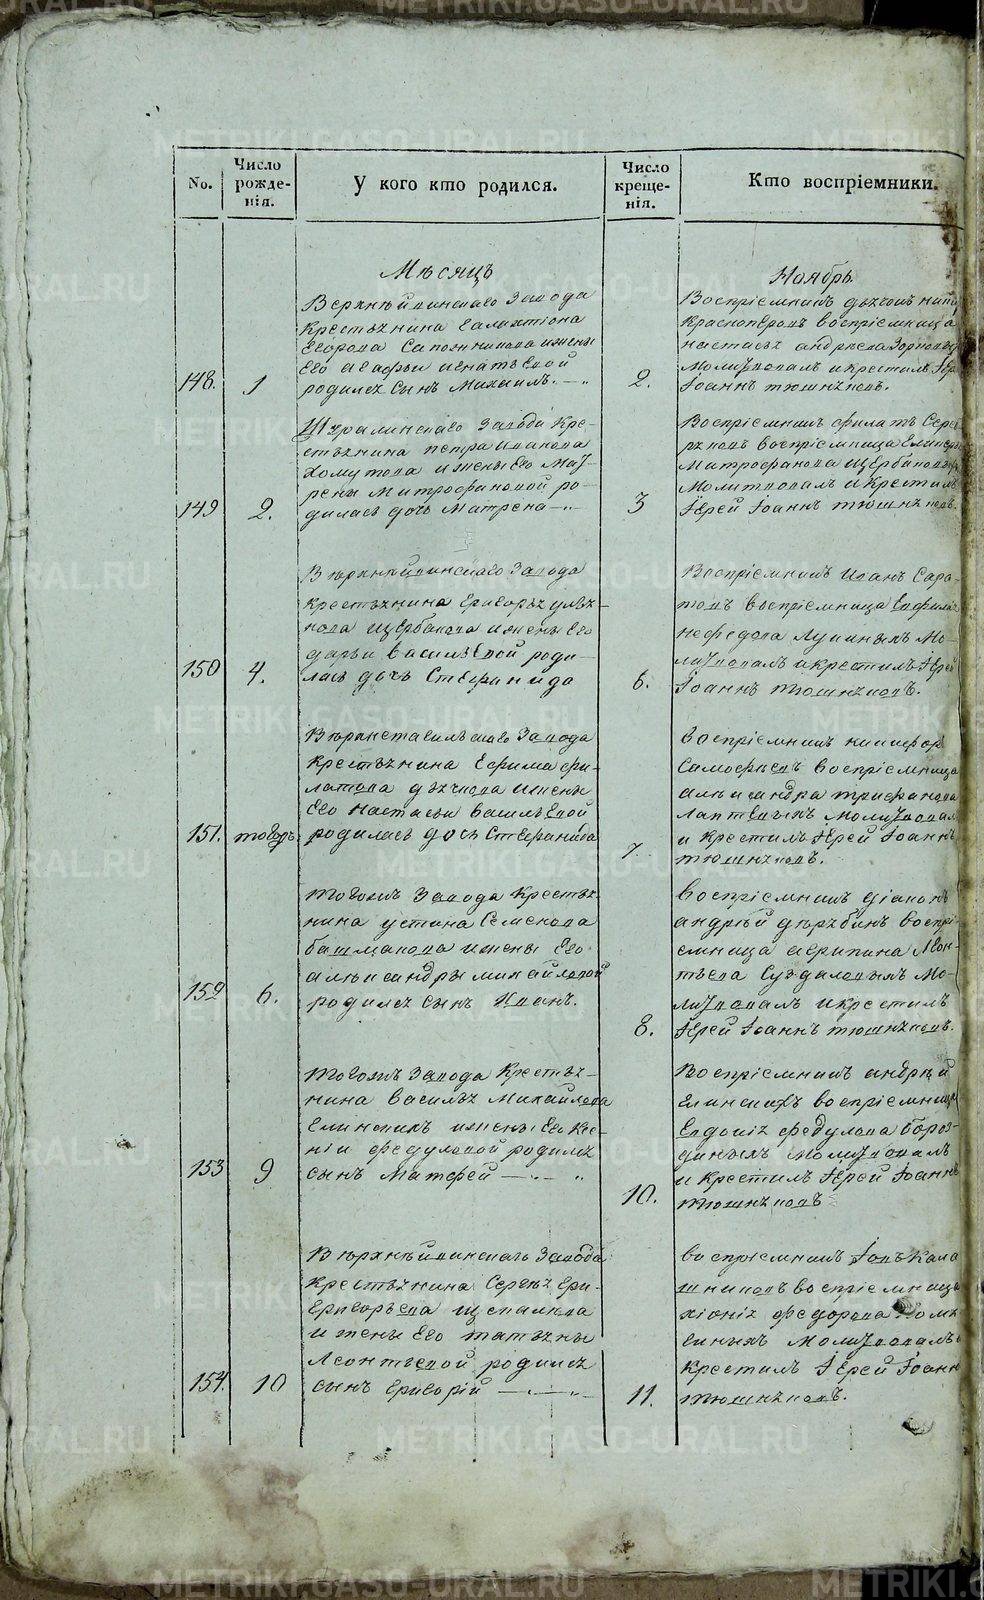 No.
Число рожде-
нія.
У кого кто родился.
Число креще-
нія.
Кто воспріемники.
Мѣсяцъ
Ноябрь
148.
1
Верхнѣйвинскаго Завода
Крестьянина Галахтіона
Егорова Сапожникова и жены
Его Агафьи Игнатьевой
родился Сынъ Михаилъ.
2.
Воспріемникъ
Красноперовъ воспріемница
настасья андрѣева
Молитвовалъ и крестилъ
Іоаннъ тюшняковъ.
149
2.
Шуралинскаго Завода Кре-
стьянина петра иванова
хомутова и жены Его Мат-
рены Митрофановой ро-
дилась дочь Матрена
3
Воспріемникъ филатъ
воспріемница
Митрофанова Щербакова
Молитвовалъ и Крестилъ
Іерей Іоаннъ тюшняковъ.
150
4.
Верхнѣйвинскаго Завода
крестьянина Григорья улья-
нова Щербакова и жены Его
дарьи васильевой роди-
лась дочь Стефанида
6.
Воспріемникъ Иванъ Сара-
повъ воспріемница
нефедова Лукиныхъ Мо-
литвовалъ и крестилъ Іерей
Іоаннъ тюшняковъ.
151.
тогожъ
Верхнетагильскаго Завода
крестьянина Ефима фи-
латова дьячкова и жены
Его настасьи васильевой
родилась дочь Стефанида
7.
воспріемникъ никифоръ
воспріемница
александра трифанова
Лаптевыхъ молитвовалъ
и крестилъ Іерей Іоаннъ
тюшняковъ.
152
6.
тогожъ Завода Крестья-
нина устина Семенова
башмакова и жены Его
александры михайловой
родился Сынъ Иванъ.
8.
воспріемникъ діаконъ
андрѣй дерябинъ воспрі-
емница агрипина Леон-
тьева Суздаловыхъ Мо-
литвовалъ и крестилъ
Іерей Іоаннъ тюшняковъ.
153
9
тогожъ Завода Крестья-
нина василья Михайлова
Елинскихъ и жены Его Ксе-
ніи федуловой родился
сынъ Матфей
10.
Воспріемникъ андрей
Елинскихъ воспріемница
Евдокія федулова бороз-
диныхъ Молитвовалъ
и Крестилъ Іерей Іоаннъ
тюшняковъ
154.
10
Верхнѣйвинскаго Завода
крестьянина Сергѣя гри-
григорьева
и жены Его татьяны
Леонтьевой родился
сынъ григорій
11.
воспріемникъ Іовъ Кала-
шниковъ воспріемница
хіонія федорова
Молитвовалъ и
крестилъ Іерей Іоаннъ
тюшняковъ.
METRIKI.GASO-URAL.RU